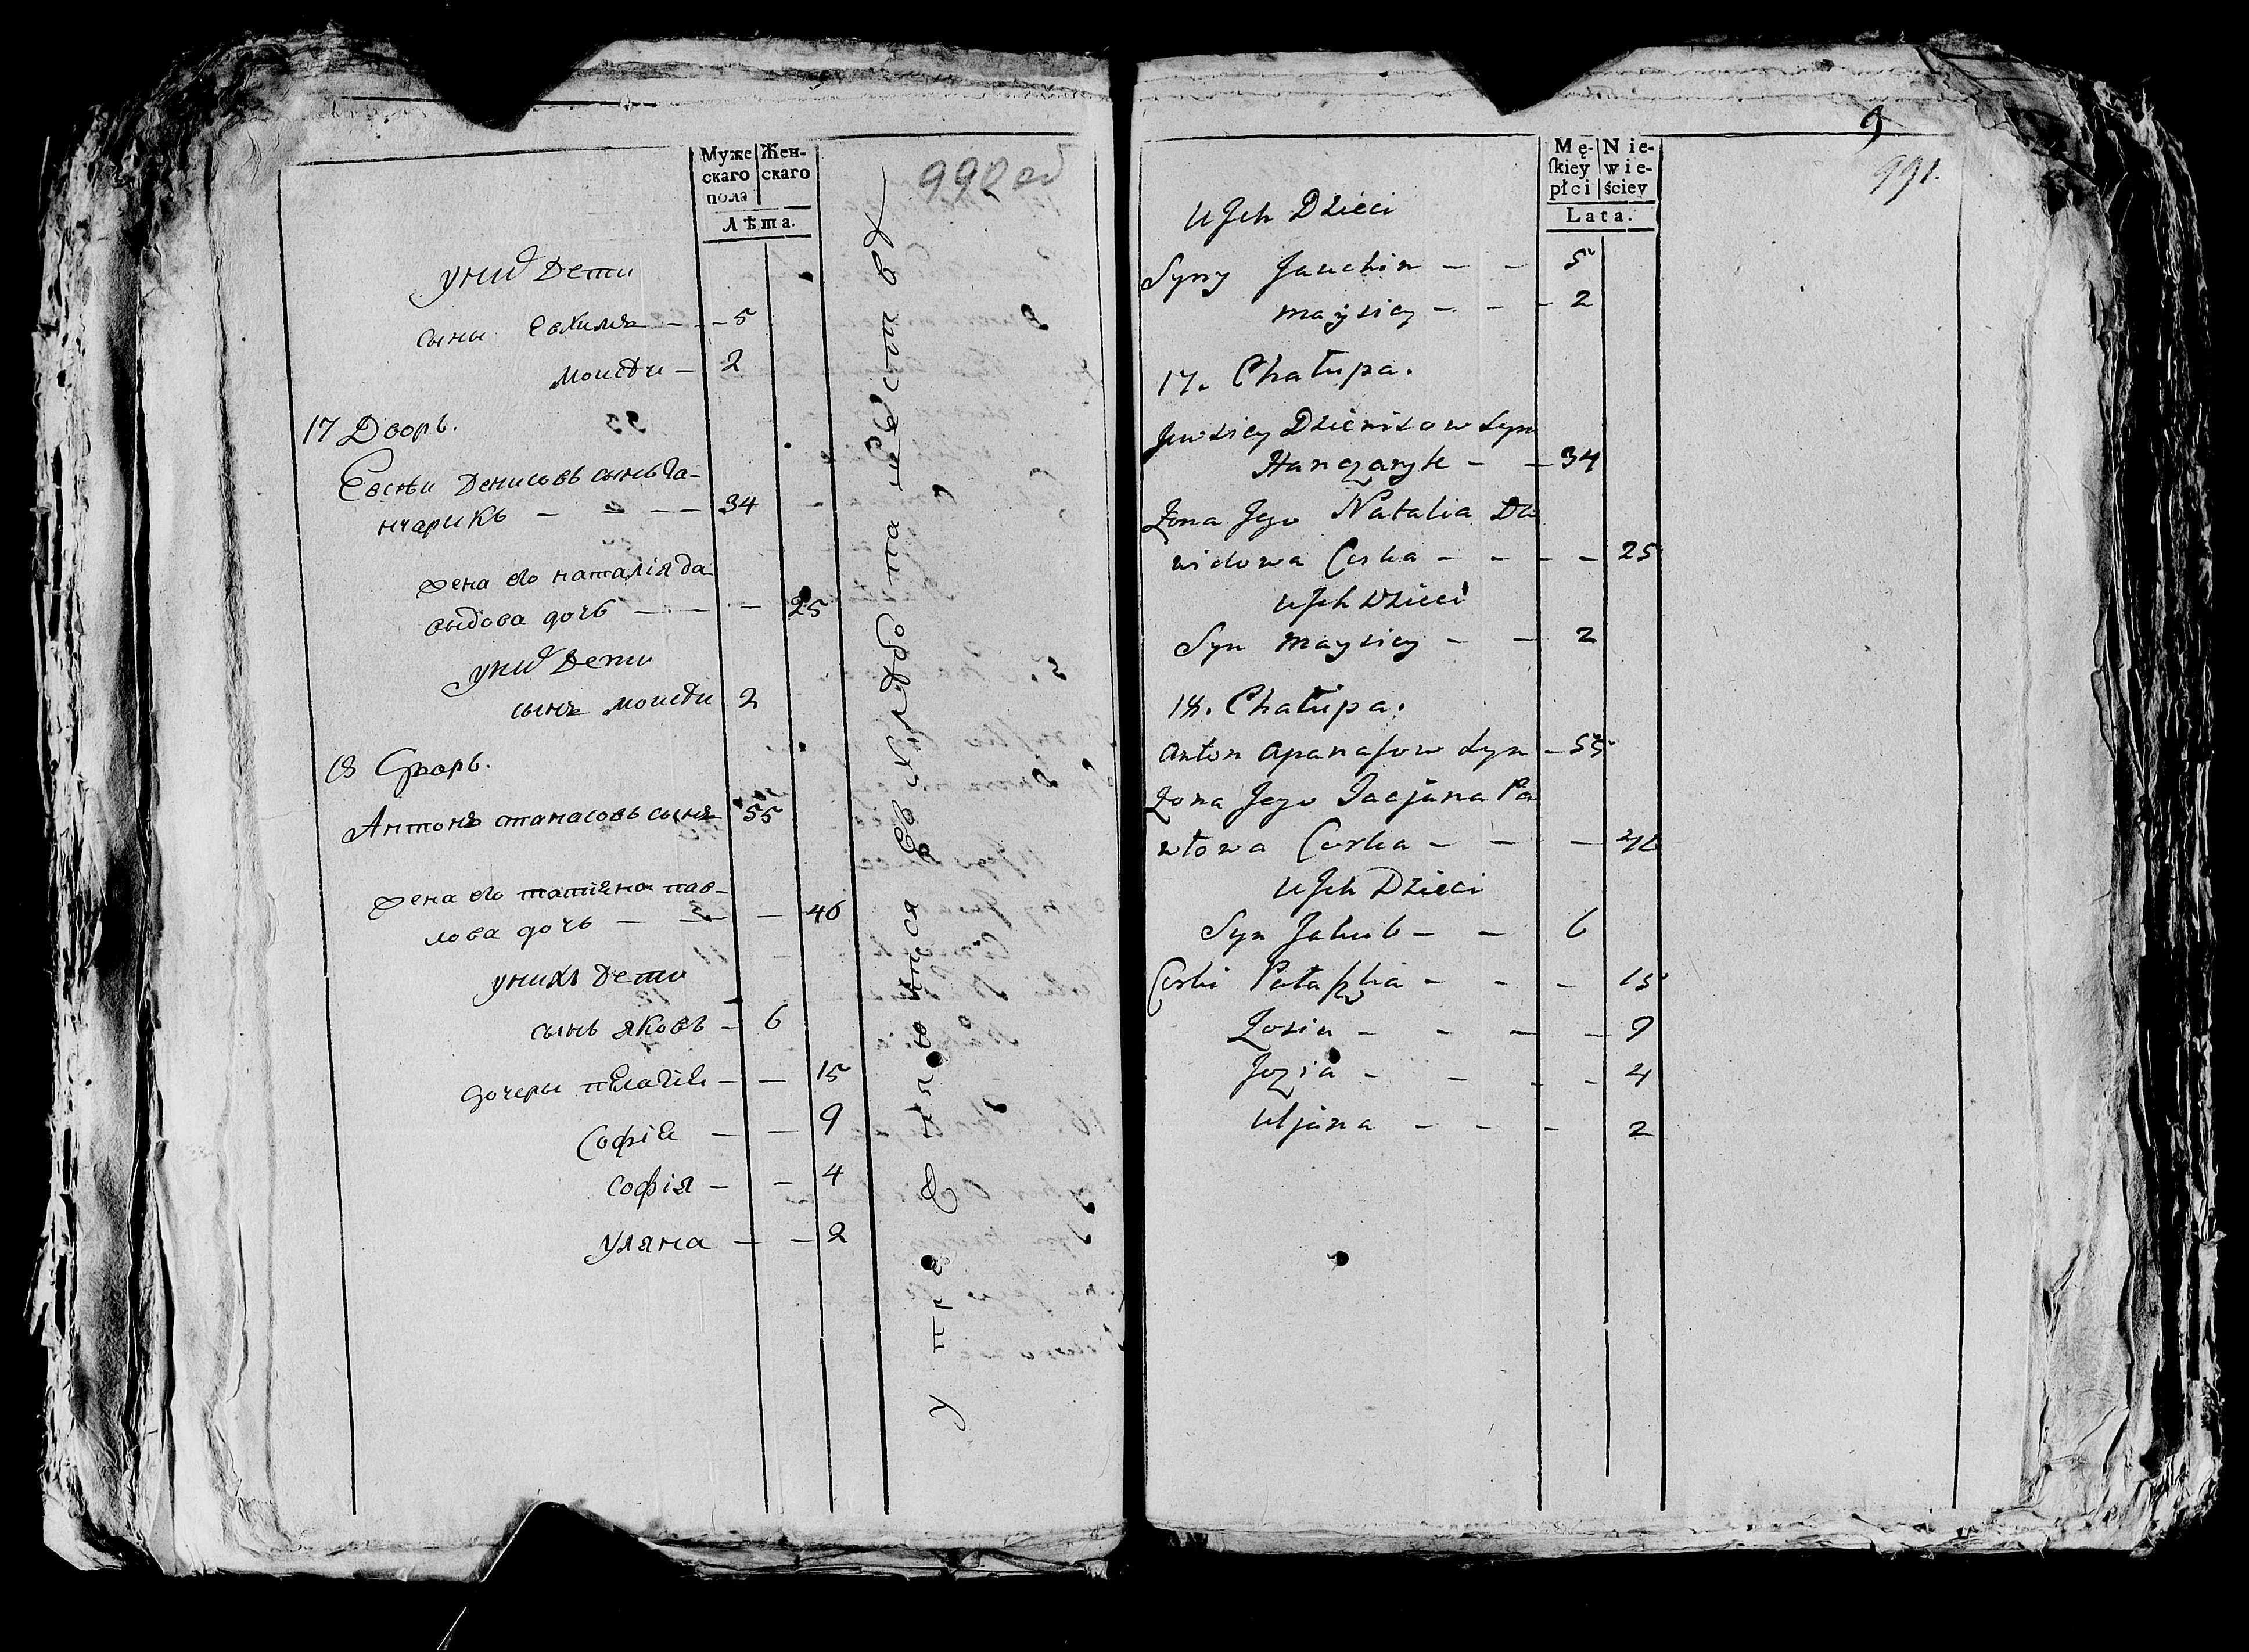 Муже Жен-
скаго скаго
пола
Лѣта.
992 об
у них Дети
сыны Евхимъ — — 5
Моисѣи — 2
17 Дворъ.
Евсѣи Денисовъ сынъ Га-
нчарикъ — — — — 34
жена его наталія да
выдова дочь — — — 25
у них Дети
сынъ Моисѣи 2
18 Дворъ.
Антонъ апанасовъ сынъ 55
жена его татіяна пав-
лова дочь — — — 46
у нихъ Дети
сынъ яковъ — 6
дочери пелагія — — 15
Софія — — 9
софія — — 4
Уляна — — 2
9
991.
Mę- Nie-
ſkiey wie-
płci ściey
Lata.
U Jch Dzieci
Syny Jauchim — — 5
Maysiey — — — 2
17. Chałupa.
Jewsiey Dzienisow Syn
Hanczaryk — — 34
Żona Jego Natalia Da
widowa Corka — — — 25
U Jch Dzieci
Syn Maysiey — — 2
18. Chałupa.
Anton Apanasow Syn — 55
Żona Jego Tacjana Pa
włowa Corka — — — 46
U Jch Dzieci
Syn Jakub — — 6
Corki — — — 15
Zosia — — — — 9
Zozia — — — — 4
Uljana — — — 2